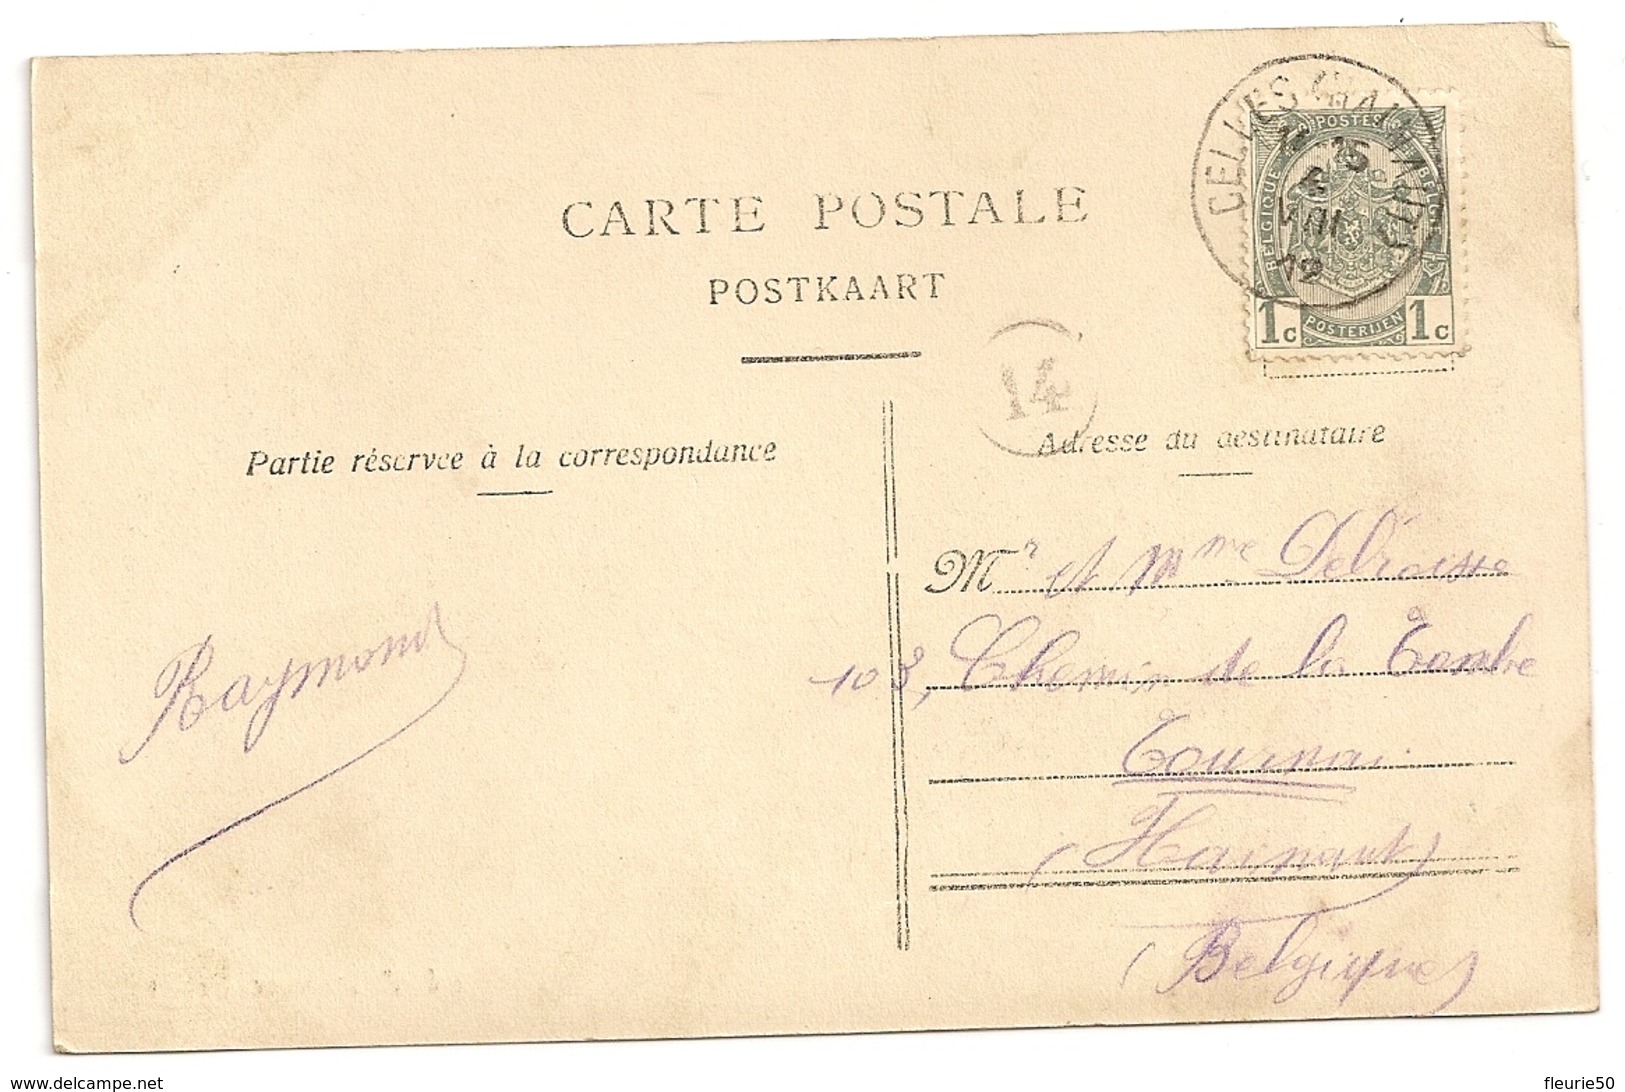 CELLES (HAINAUT)
VIII
12
POSTES
BELGIQUE
BELGIË
1c POSTERIJEN 1c
CARTE POSTALE
POSTKAART
14
Partie réservée à la correspondance
Adresse du destinataire
Mr et Mme Delroisse
103, Chemin de la Tombe
Tournai
(Hainaut)
(Belgique)
Raymond
delcampe.net
fleurie50